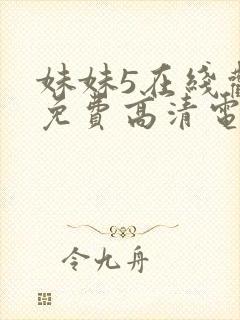 妹妹5在线
免费高清電
令九舟